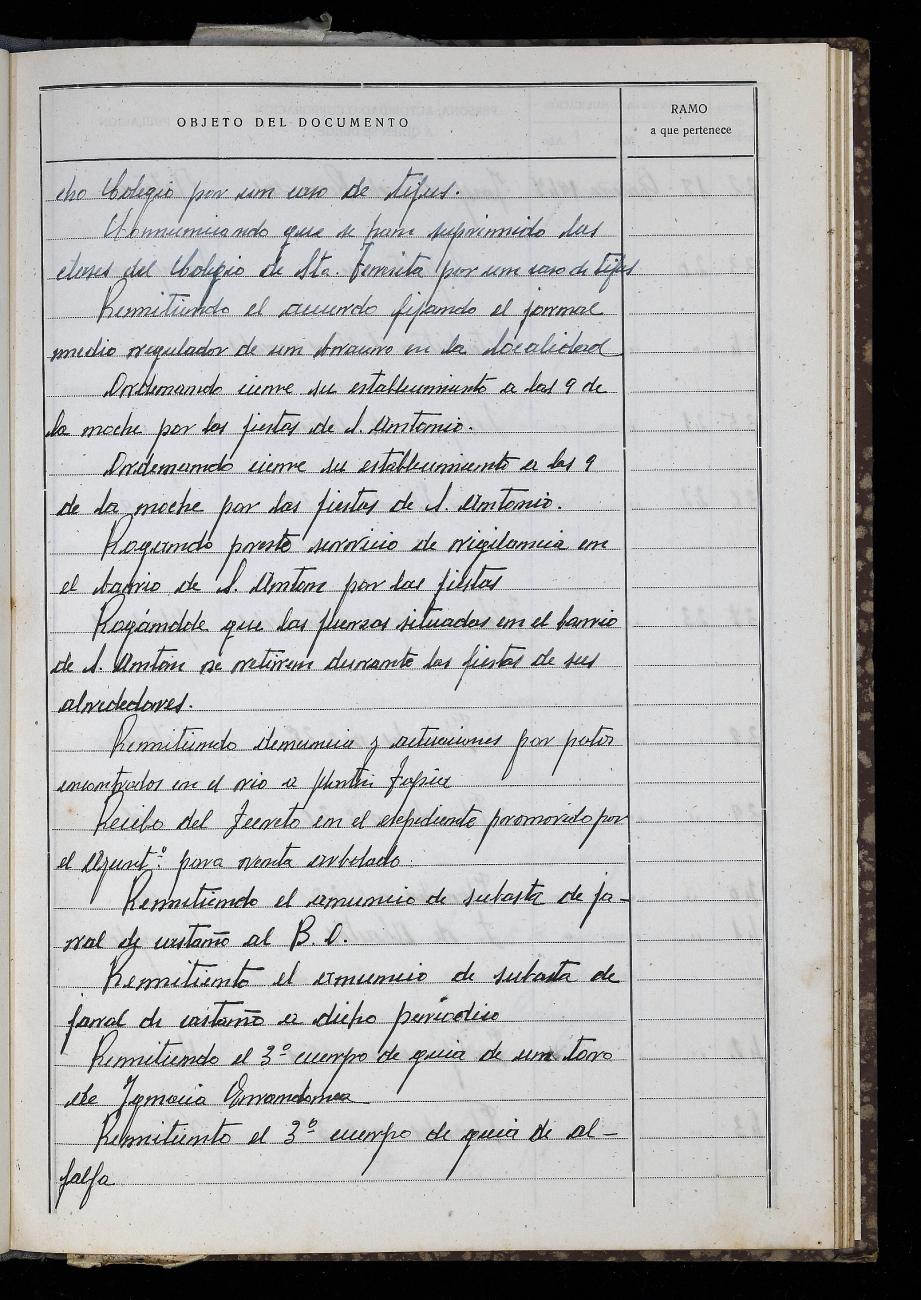 OBJETO DEL DOCUMENTO
RAMO
a que pertenece
cho Colegio por un caso de tifus.
Comunicando que se han suprimido las
clases del Colegio de Sta. Teresita por un caso de tifus
Remitiendo el acuerdo fijando el jornal
medio regulador de un bracero en la localidad
Ordenando cierre su establecimiento a las 9 de
la noche por las fiestas de S. Antonio.
Ordenando cierre su establecimiento a las 9
de la noche por las fiestas de S. Antonio.
Rogando preste servicio de vigilancia en
el barrio de S. Anton por las fiestas
Rogándole que las fuerzas situadas en el barrio
de S. Antón se retiren durante las fiestas de sus
alrededores.
Remitiendo denuncia y actuaciones por
encontrados en el rio a Martin
Recibo del Decreto en el expediente promovido por
el Ayuntº. para venta arbolado.
Remitiendo el anuncio de subasta de ja-
ral de castaño al B. O.
Remitiento el anuncio de subasta de
jaral de castaño a dicho periódico
Remitiendo el 3º cuerpo de guia de un toro
de Ignacia Errandonea
Remitiento el 3º cuerpo de guia de al-
falfa